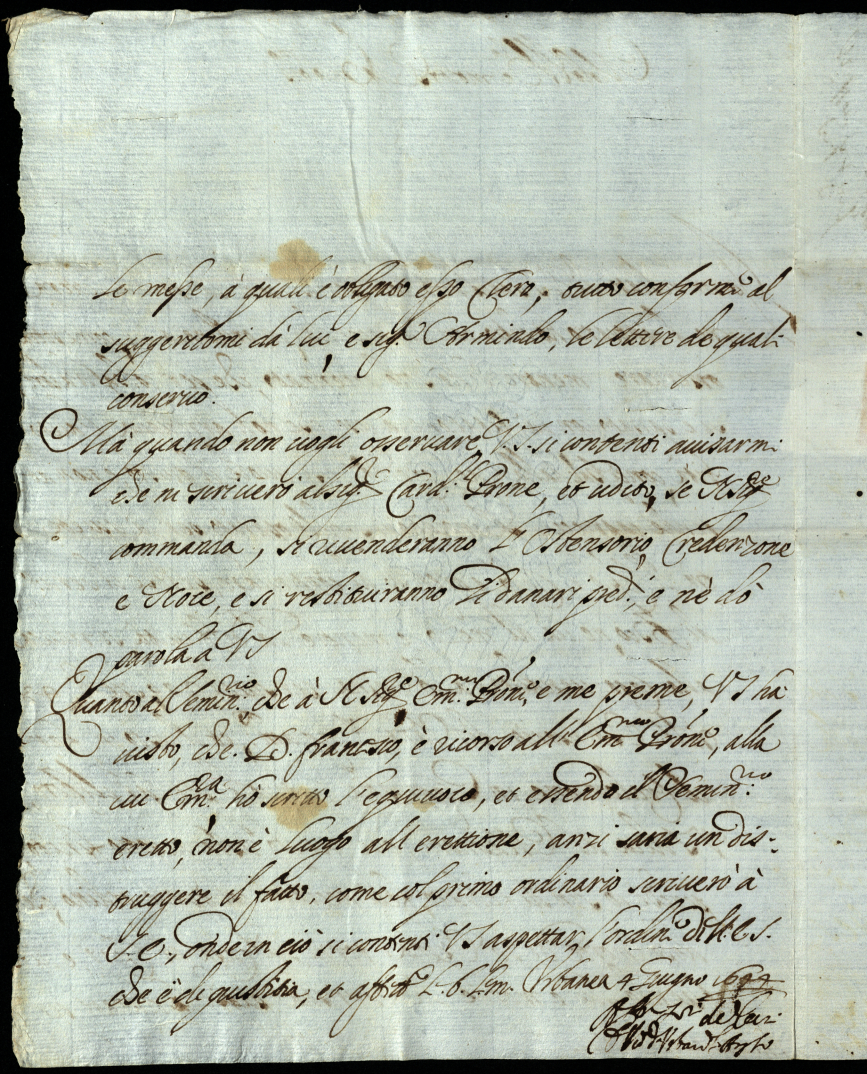 le messe, à quali è obligato esso Clero, tutto conforme al
suggeritomi dà lui, e sig.r Armindo, le lettere de quali
conservo.
Mà quando non vogli osservare, V.S. si contenti avisarmi
che ne scriverò al sig.r Card.l Prone, et udito, se
commanda, si rivenderanno l'Ostensorio, Credenzone
e Noce, e si restituiranno li danari sped.i, e nè dò
parola à VS
Quanto al Semin.rio, che à Em.mo Prone, e me preme, VS hà
visto, che D. Francesco, è ricorso all' Em.mo Prone, alla
cui Em.za hò scritto l'equivoco, et essendo il Semin.rio
eretto, non è luogo all erettione, anzi saria un dis-
truggere il fatto, come col primo ordinario scriverò à
S.E., onde in ciò si contenti VS aspettar l'ordine dell' E.S.
che è di giustitia, et Urbanea 4 Giugno